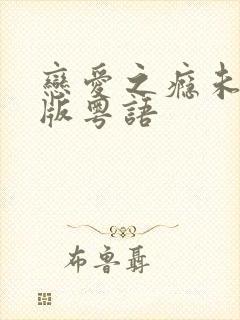 戀愛之癮未
版粵語
布魯聶